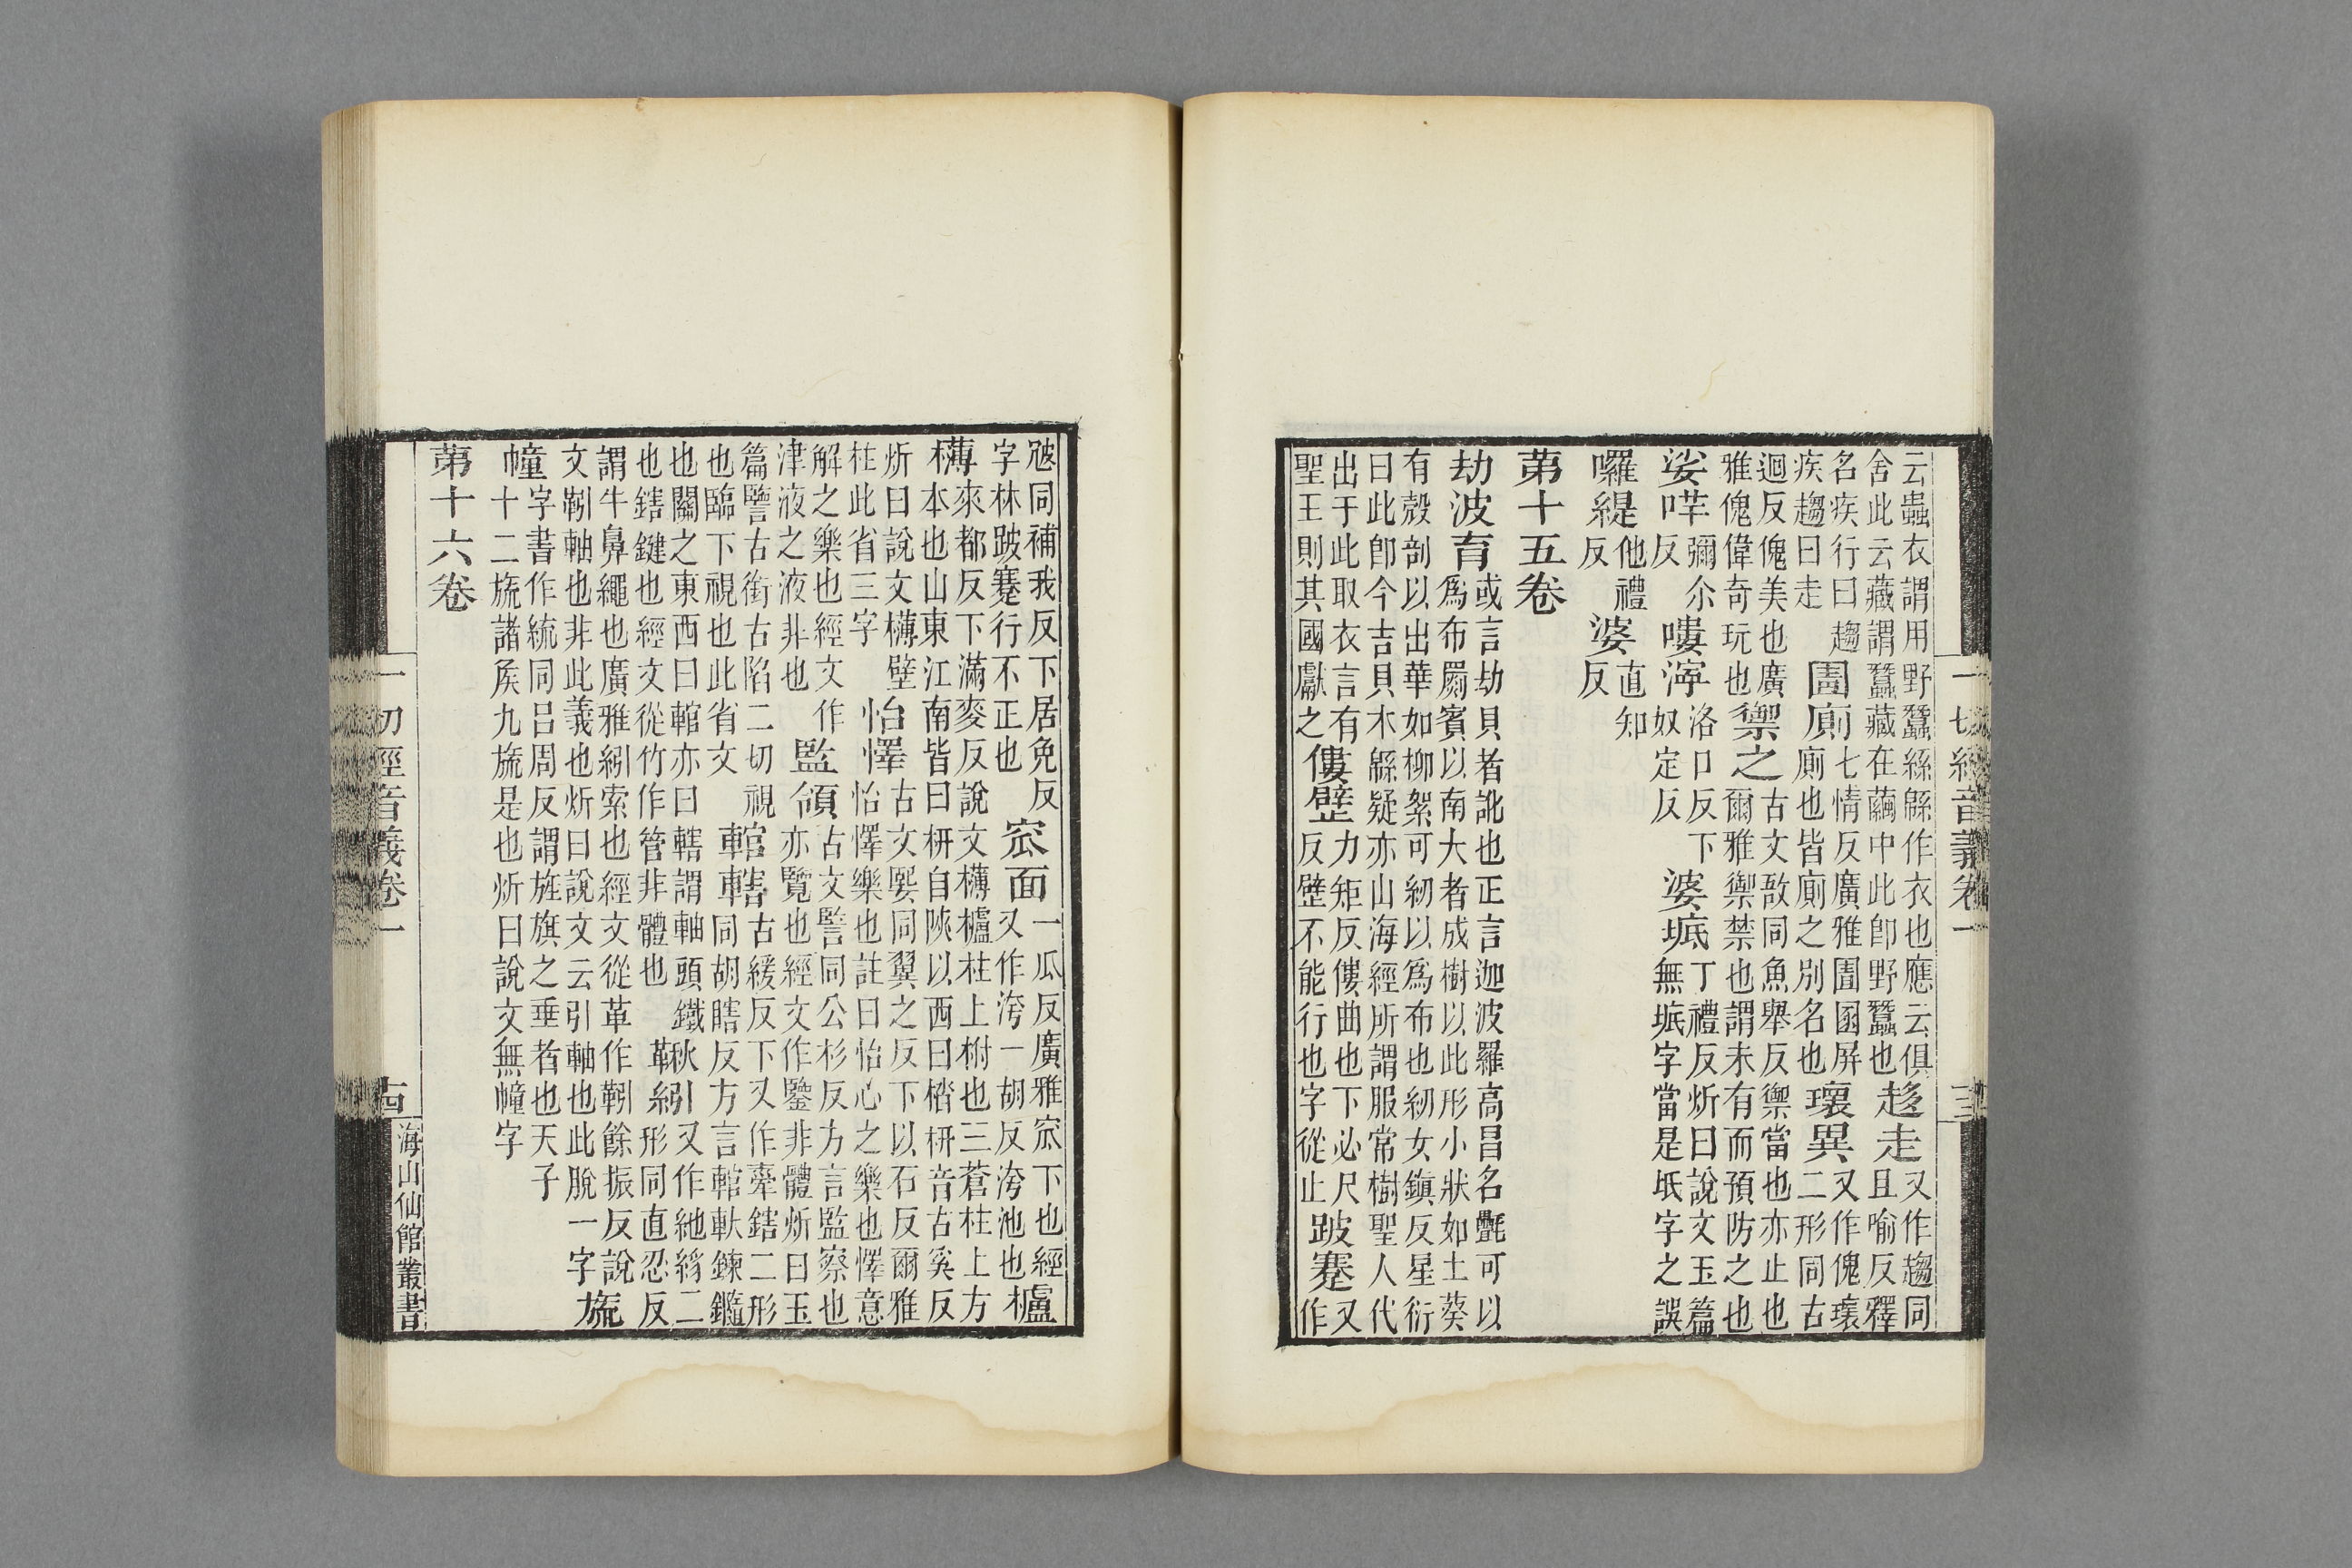 云蟲衣謂用野蠶絲緜作衣也應云俱舍此云藏謂蠶藏在繭中此卽野蠶也趍走又作趨同且喻反釋
名疾行曰趨疾趨曰走圊廁七情反廣雅圊圂屏廁也皆廁之別名也瓌異又作傀瓌二形同古
迴反傀美也廣雅傀偉奇玩也禦之古文敔同魚舉反禦當也亦止也爾雅禦禁也謂未有而預防之也
娑哶彌尒反嘍濘洛口反下奴定反婆坻丁禮反炘曰說文玉篇無坻字當是坁字之誤
囉緹他禮反婆直知反
第十五卷
劫波育或言劫貝者訛也正言迦波羅高昌名氎可以爲布罽賓以南大者成樹以此形小狀如土葵
有殼剖以出華如柳絮可紉以爲布也紉女鎭反星衍曰此卽今吉貝木緜疑亦山海經所謂服常樹聖人代
出于此取衣言有聖王則其國獻之僂躄力矩反僂曲也下必尺反躄不能行也字從止跛蹇又作
同補我反下居免反字林跛蹇行不正也窊面一瓜反廣雅窊下也經又作洿一胡反洿池也櫨
欂來都反下滿麥反說文欂櫨柱上柎也三蒼柱上方本也山東江南皆曰枅自陝以西曰楷枅音古奚反
炘曰說文欂壁柱此省三字怡懌古文同翼之反下以石反爾雅怡懌樂也註曰怡心之樂也懌意
解之樂也經文作津液之液非也監領古文譼同公杉反方言監察也亦覽也經文作鑒非體炘曰玉
篇譼古銜古陷二切視也臨下視也此省文輨轄古緩反下又作舝鎋二形同胡瞎反方言輨軑鍊鑯
也關之東西曰輨亦曰轄謂軸頭鐵也鎋鍵也經文從竹作管非體也靷紖又作紖二形同直忍反
謂牛鼻繩也廣雅紖索也經文從革作靷餘振反說文靷軸也非此義也炘曰說文云引軸也此脫一字旒
幢字書作統同呂周反謂旌旗之垂者也天子十二旒諸矦九旒是也炘曰說文無幢字
第十六卷
一切經音義卷一
十三
一切經音義卷一
十四
海山仙館叢書